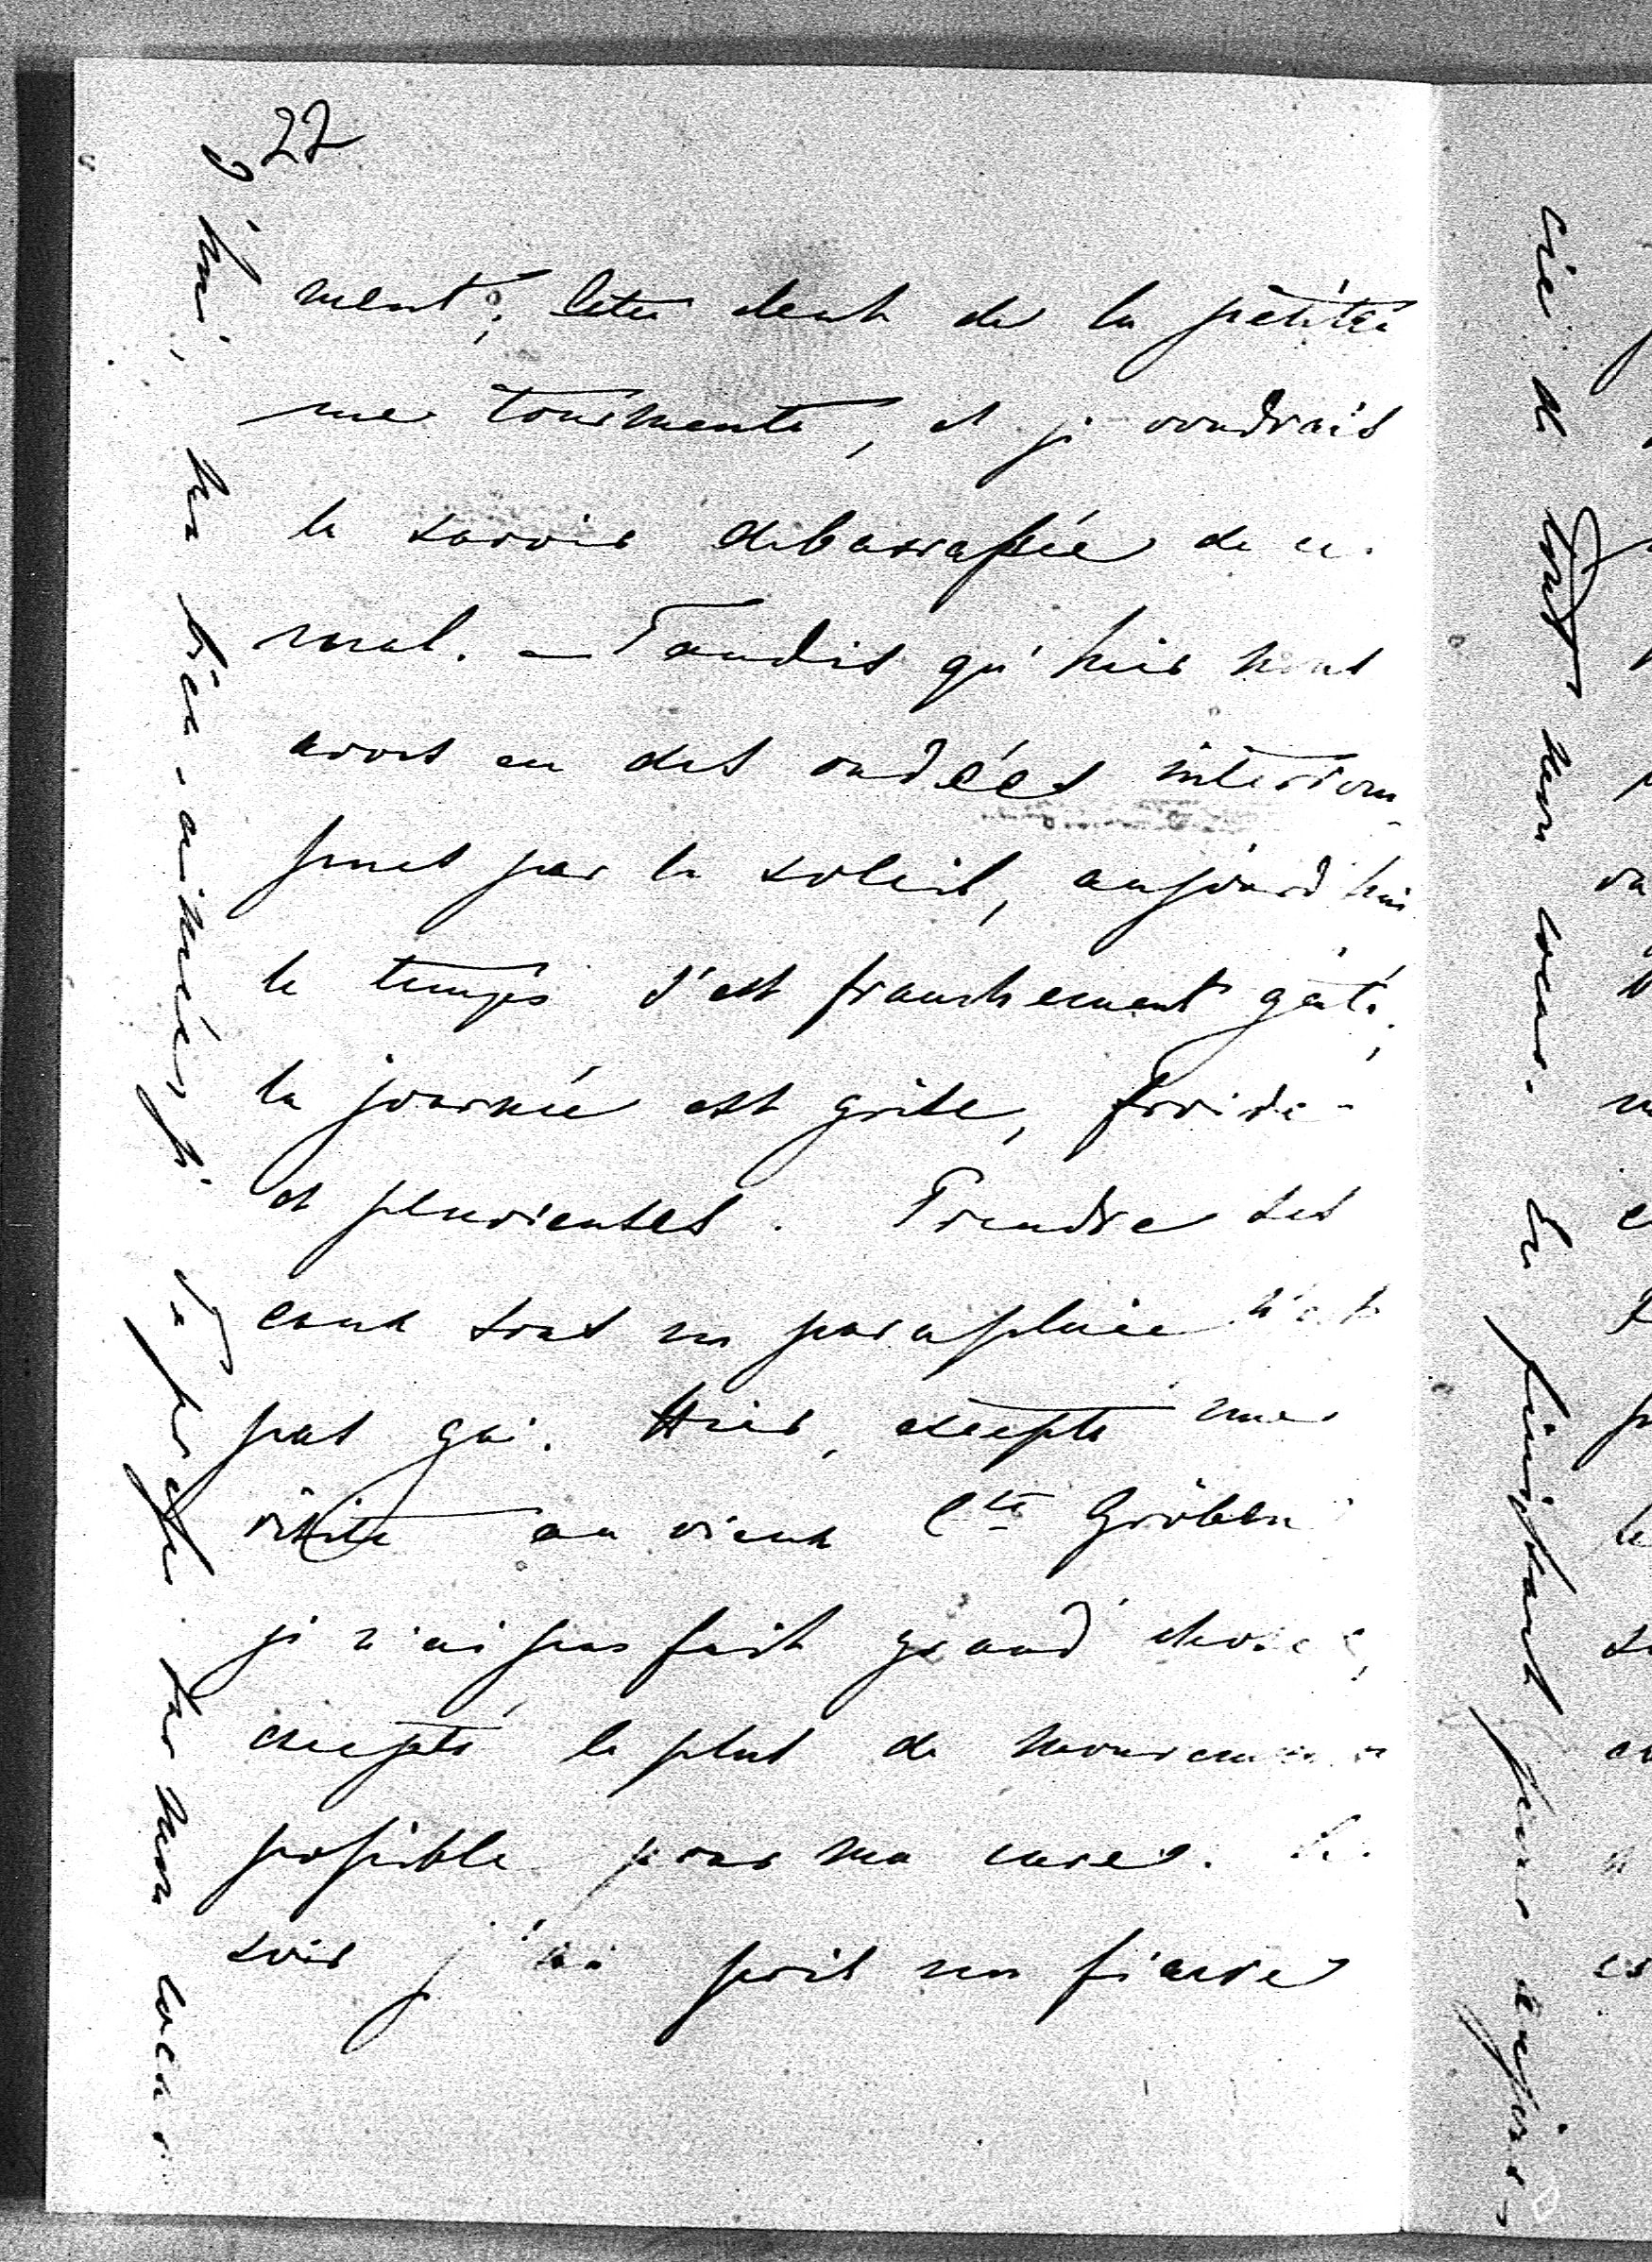 22
ment; cette dent de la petite
me tourmente, et je voudrais
la savoir debarassée de ce
mal. — Tandis qu'hier nous
avons eu des ondées interrom-
pues par le soleil, aujourd'hui
le temps s'est franchement gâté,
la journée est grise, froide
et pluvieuses. Prendre ses
eaux sous un parapluie n'est
pas gai. Hier, excepté une
visite au vieux Cte Gröben
je n'ai pas fait grand chose,
excepté le plus de mouvement
possible pour ma cure. Le
soir j'ai pris un fiacre
ma bien-aimée, je
te presse sur mon coeur
cie de tout mon coeur. En finissant